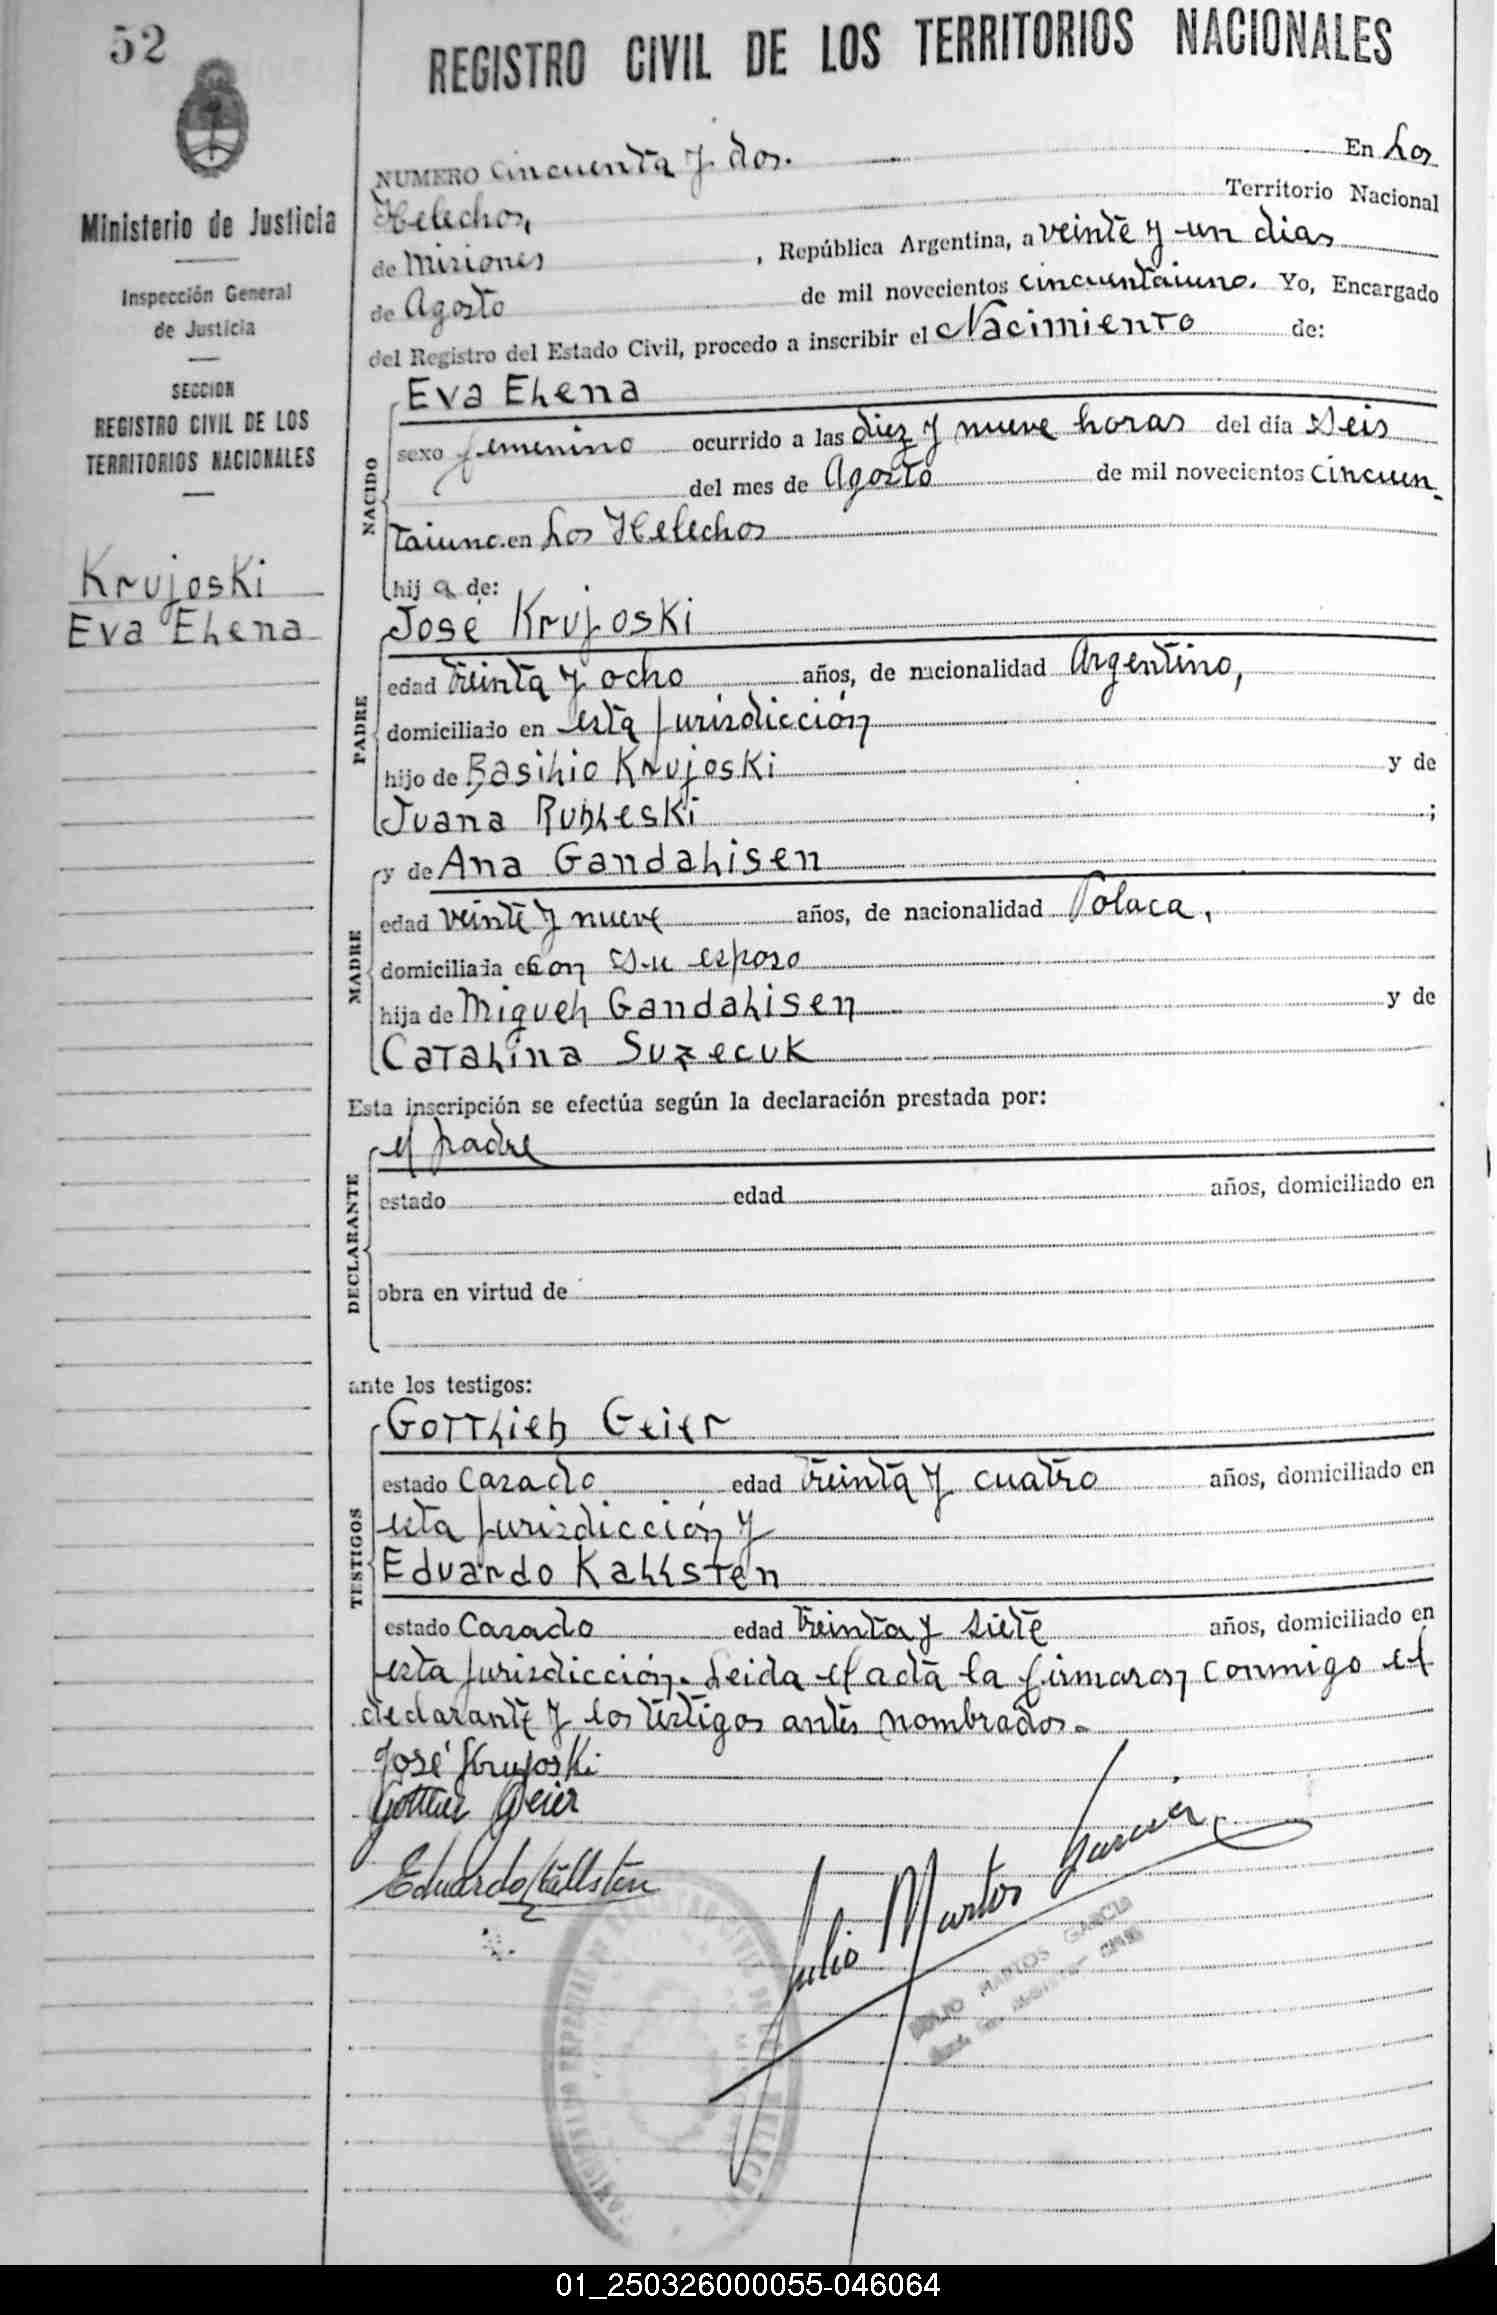 52
REGISTRO CIVIL DE LOS TERRITORIOS NACIONALES
Ministerio de Justicia
Inspección General
de Justicia
SECCION
REGISTRO CIVIL DE LOS
TERRITORIOS NACIONALES
Krujoski
Eva Elena
NUMERO cincuenta y dos. En Los
Helechos, Territorio Nacional
de Misiones, República Argentina, a veinte y un dias
de Agosto de mil novecientos cincuentaiuno. Yo, Encargado
del Registro del Estado Civil, procedo a inscribir el Nacimiento de:
NACIDO
Eva Elena
sexo femenino ocurrido a las diez y nueve horas del día seis
del mes de Agosto de mil novecientos cincuen-
taiuno. en Los Helechos
hij a de:
PADRE
José Krujoski
edad treinta y ocho años, de nacionalidad Argentino,
domiciliado en esta jurisdicción
hijo de Basilio Krujoski y de
Juana Rubleski ;
y de Ana Gandalisen
MADRE
edad veinte y nueve años, de nacionalidad Polaca,
domiciliada con su esposo
hija de Miguel Gandalisen y de
Catalina Suzecuk
Esta inscripción se efectúa según la declaración prestada por:
DECLARANTE
el padre
estado edad años, domiciliado en
obra en virtud de
ante los testigos:
TESTIGOS
Gottlieb Geier
estado Casado edad treinta y cuatro años, domiciliado en
esta jurisdicción y
Eduardo Kallsten
estado Casado edad treinta y siete años, domiciliado en
esta jurisdicción. Leida el acta la firmaron conmigo el
declarante y los testigos antes nombrados.
José Krujoski
Gottlieb Geier
Eduardo Källsten
Julio Martos Garcia
JULIO MARTOS GARCIA
01_250326000055-046064